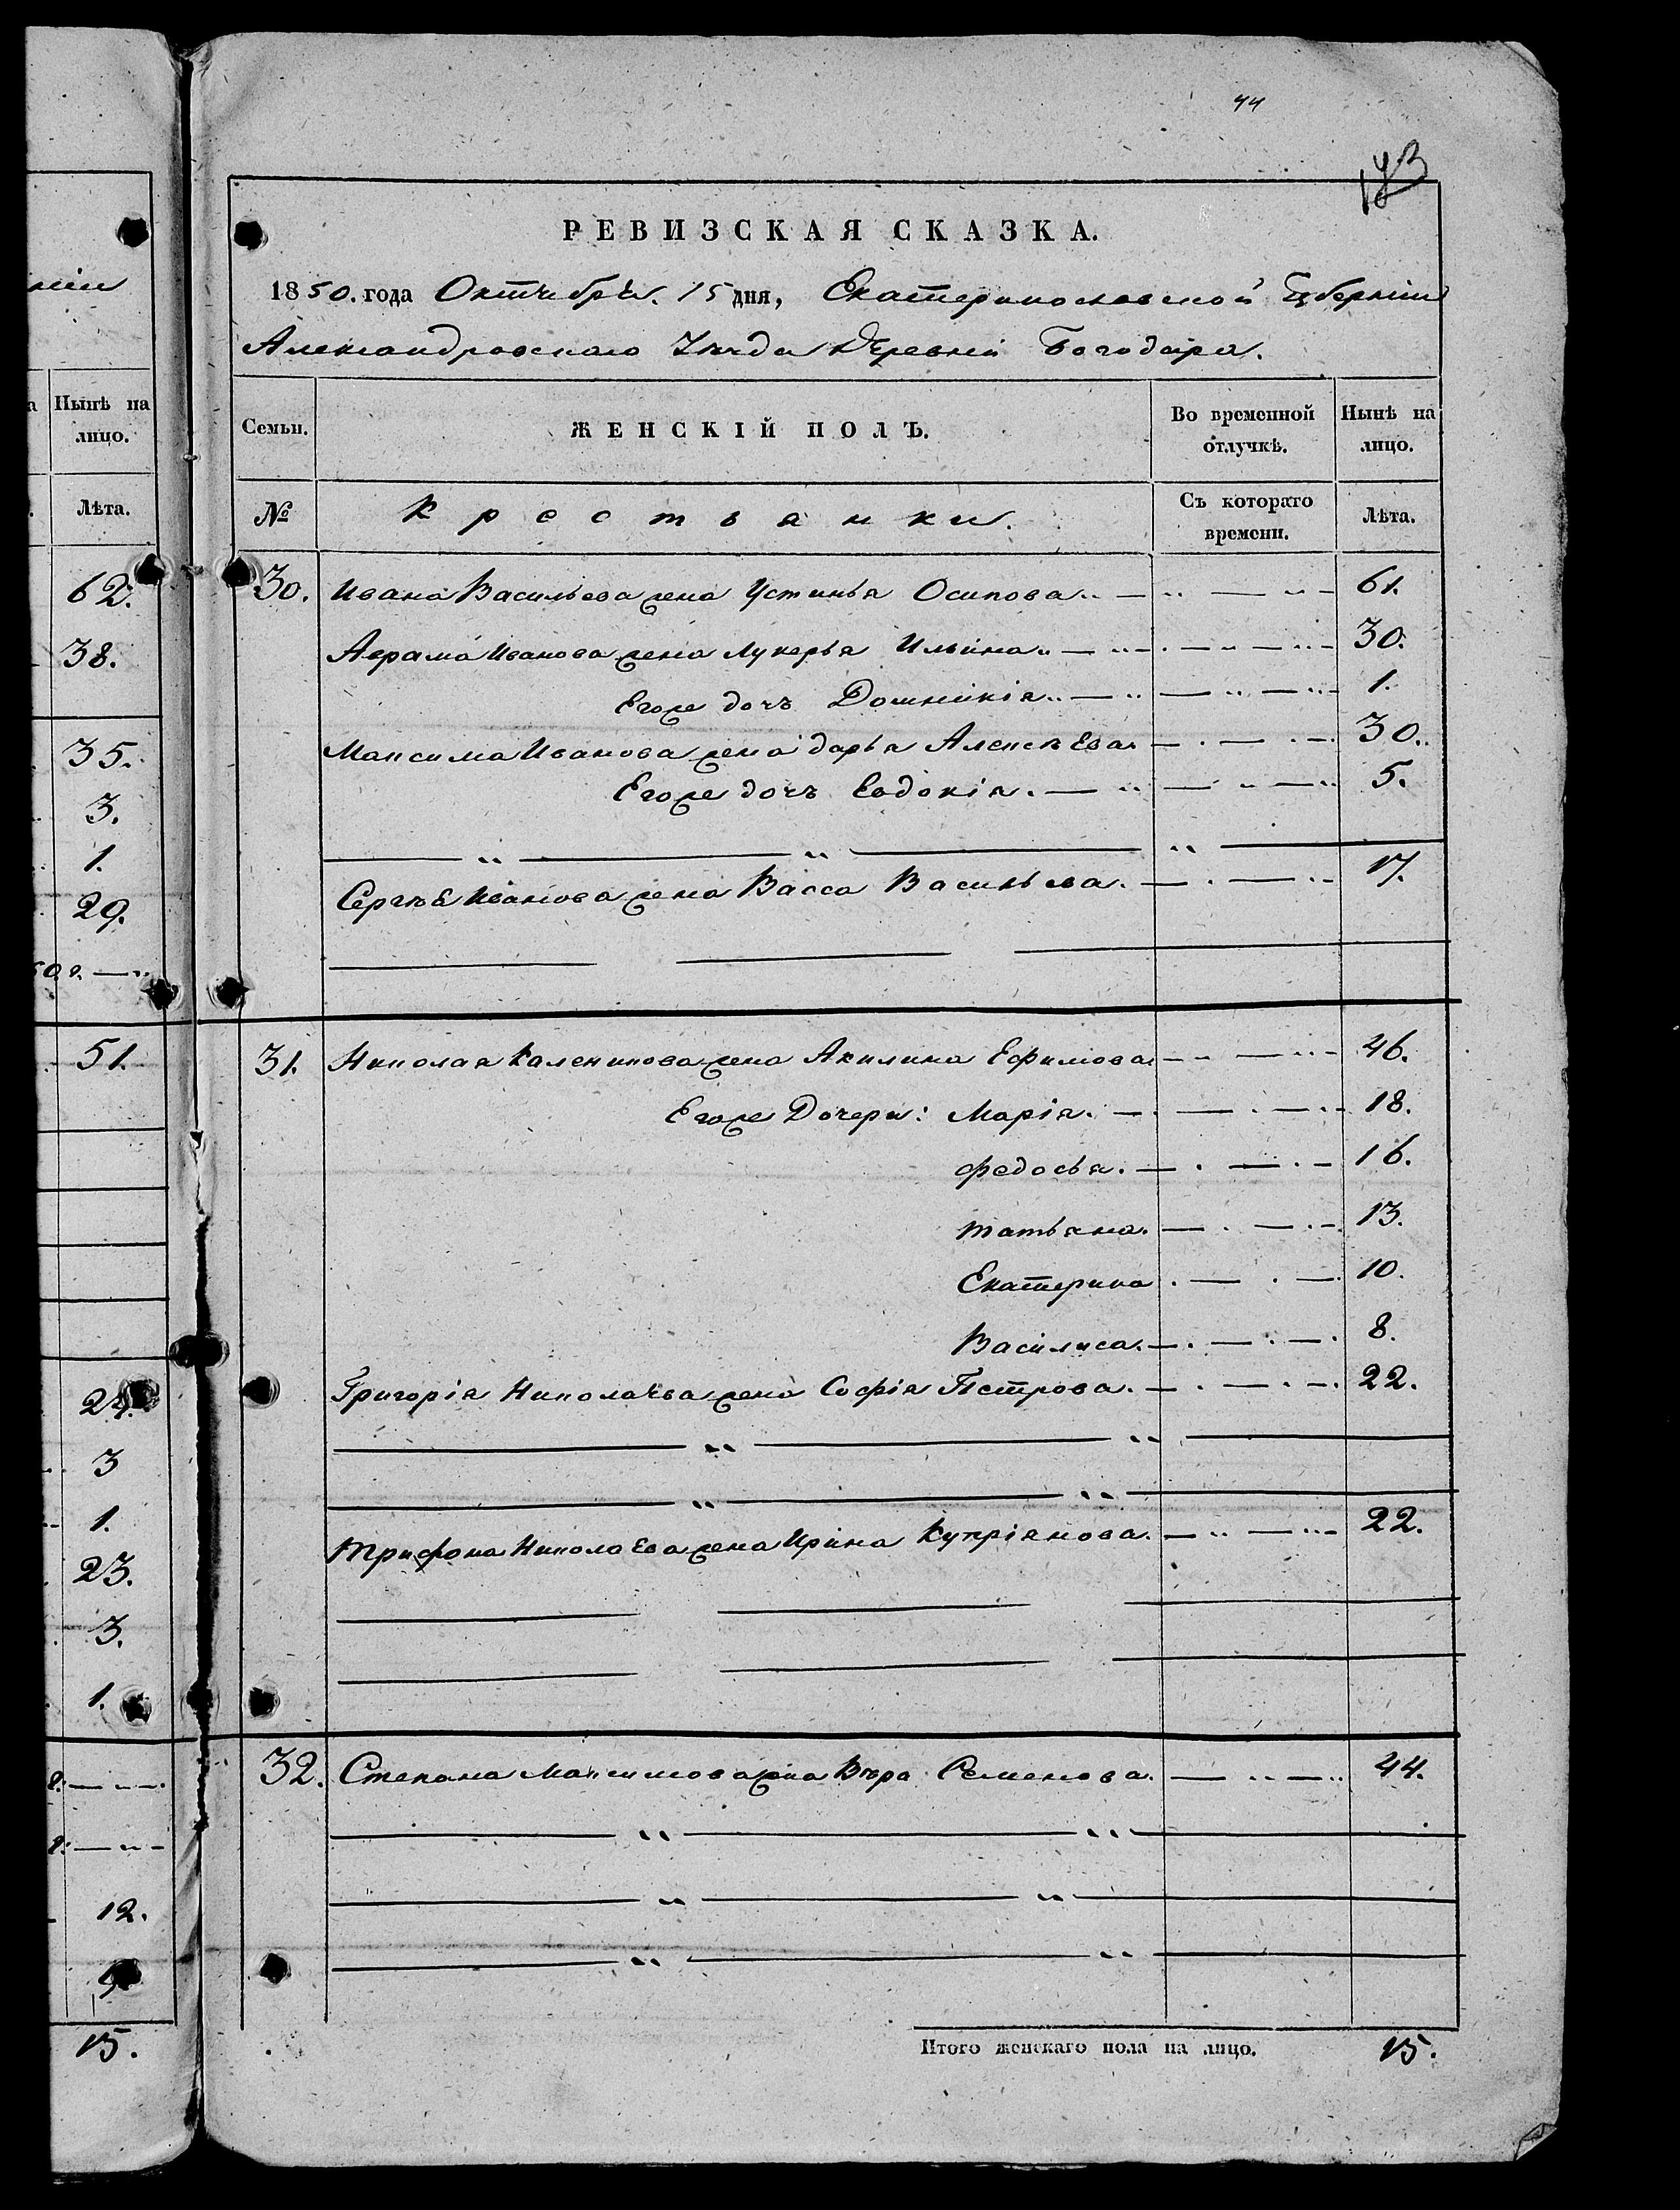 44
РЕВИЗСКАЯ СКАЗКА.
1850. года Октября. 15 дня, Екатеринославской Губерніи
Александровскаго Уѣзда Деревни Богодара.
Семьи.
ЖЕНСКІЙ ПОЛЪ.
Во временной отлучкѣ.
Нынѣ на лицо.
№
Крестьянки.
Съ котораго времени.
Лѣта.
30. Ивана Васильева жена Устинья Осипова 61.
Аврама Иванова жена Лукерья Ильина 30.
Егоже дочь Домникія 1.
Максима Иванова жена дарья Алексѣева 30.
Егоже дочь Евдокія. 5.
Сергѣя Иванова жена Васса Васильева. 17.
31. Николая Каленикова жена Акилина Ефимова 46.
Егоже Дочери: Марія. 18.
Федосья. 16.
татьяна. 13.
Екатерина 10.
Василиса. 8.
Григорія Николаева жена Софія Петрова. 22.
Трифона Николаева жена Ирина Купріянова. 22.
32. Степана Максимова жена Вѣра Семенова. 44.
Итого женскаго пола на лицо. 15.
Нынѣ на
лицо.
Лѣта.
62.
38.
35.
3.
1.
29.
51.
3
1.
23.
3.
1.
12.
15.